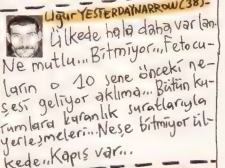 Uğur YESTERDAYNARROW (38)-
Ülkede hala daha var lan.
Ne mutlu... Bitmiyor... Fetocu-
ların o 10 sene önceki ne-
şesi geliyor aklıma... Bütün ku-
rumlara karanlık suratlarıyla
yerleşmeleri... Neşe bitmiyor ül-
kede.. Kapış var...